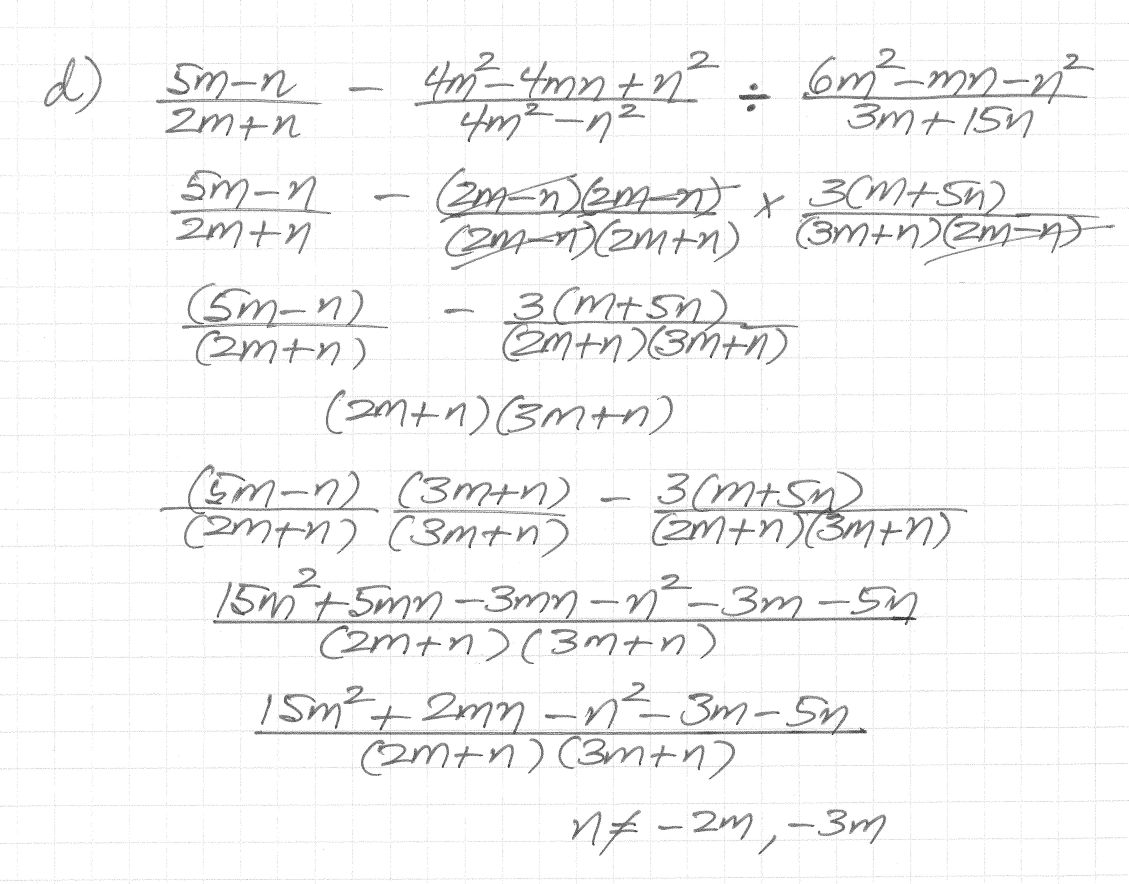 d) (5m-n)/(2m+n) - (4m²-4mn+n²)/(4m²-n²) ÷ (6m²-mn-n²)/(3m+15n)
(5m-n)/(2m+n) - (2m-n)(2m-n)/(2m-n)(2m+n) × 3(m+5n)/(3m+n)(2m-n)
(5m-n)/(2m+n) - 3(m+5n)/(2m+n)(3m+n)
(2m+n)(3m+n)
(5m-n)/(2m+n) (3m+n)/(3m+n) - 3(m+5n)/(2m+n)(3m+n)
15m²+5mn-3mn-n²-3m-5n/(2m+n)(3m+n)
15m²+2mn-n²-3m-5n/(2m+n)(3m+n)
n≠ -2m, -3m